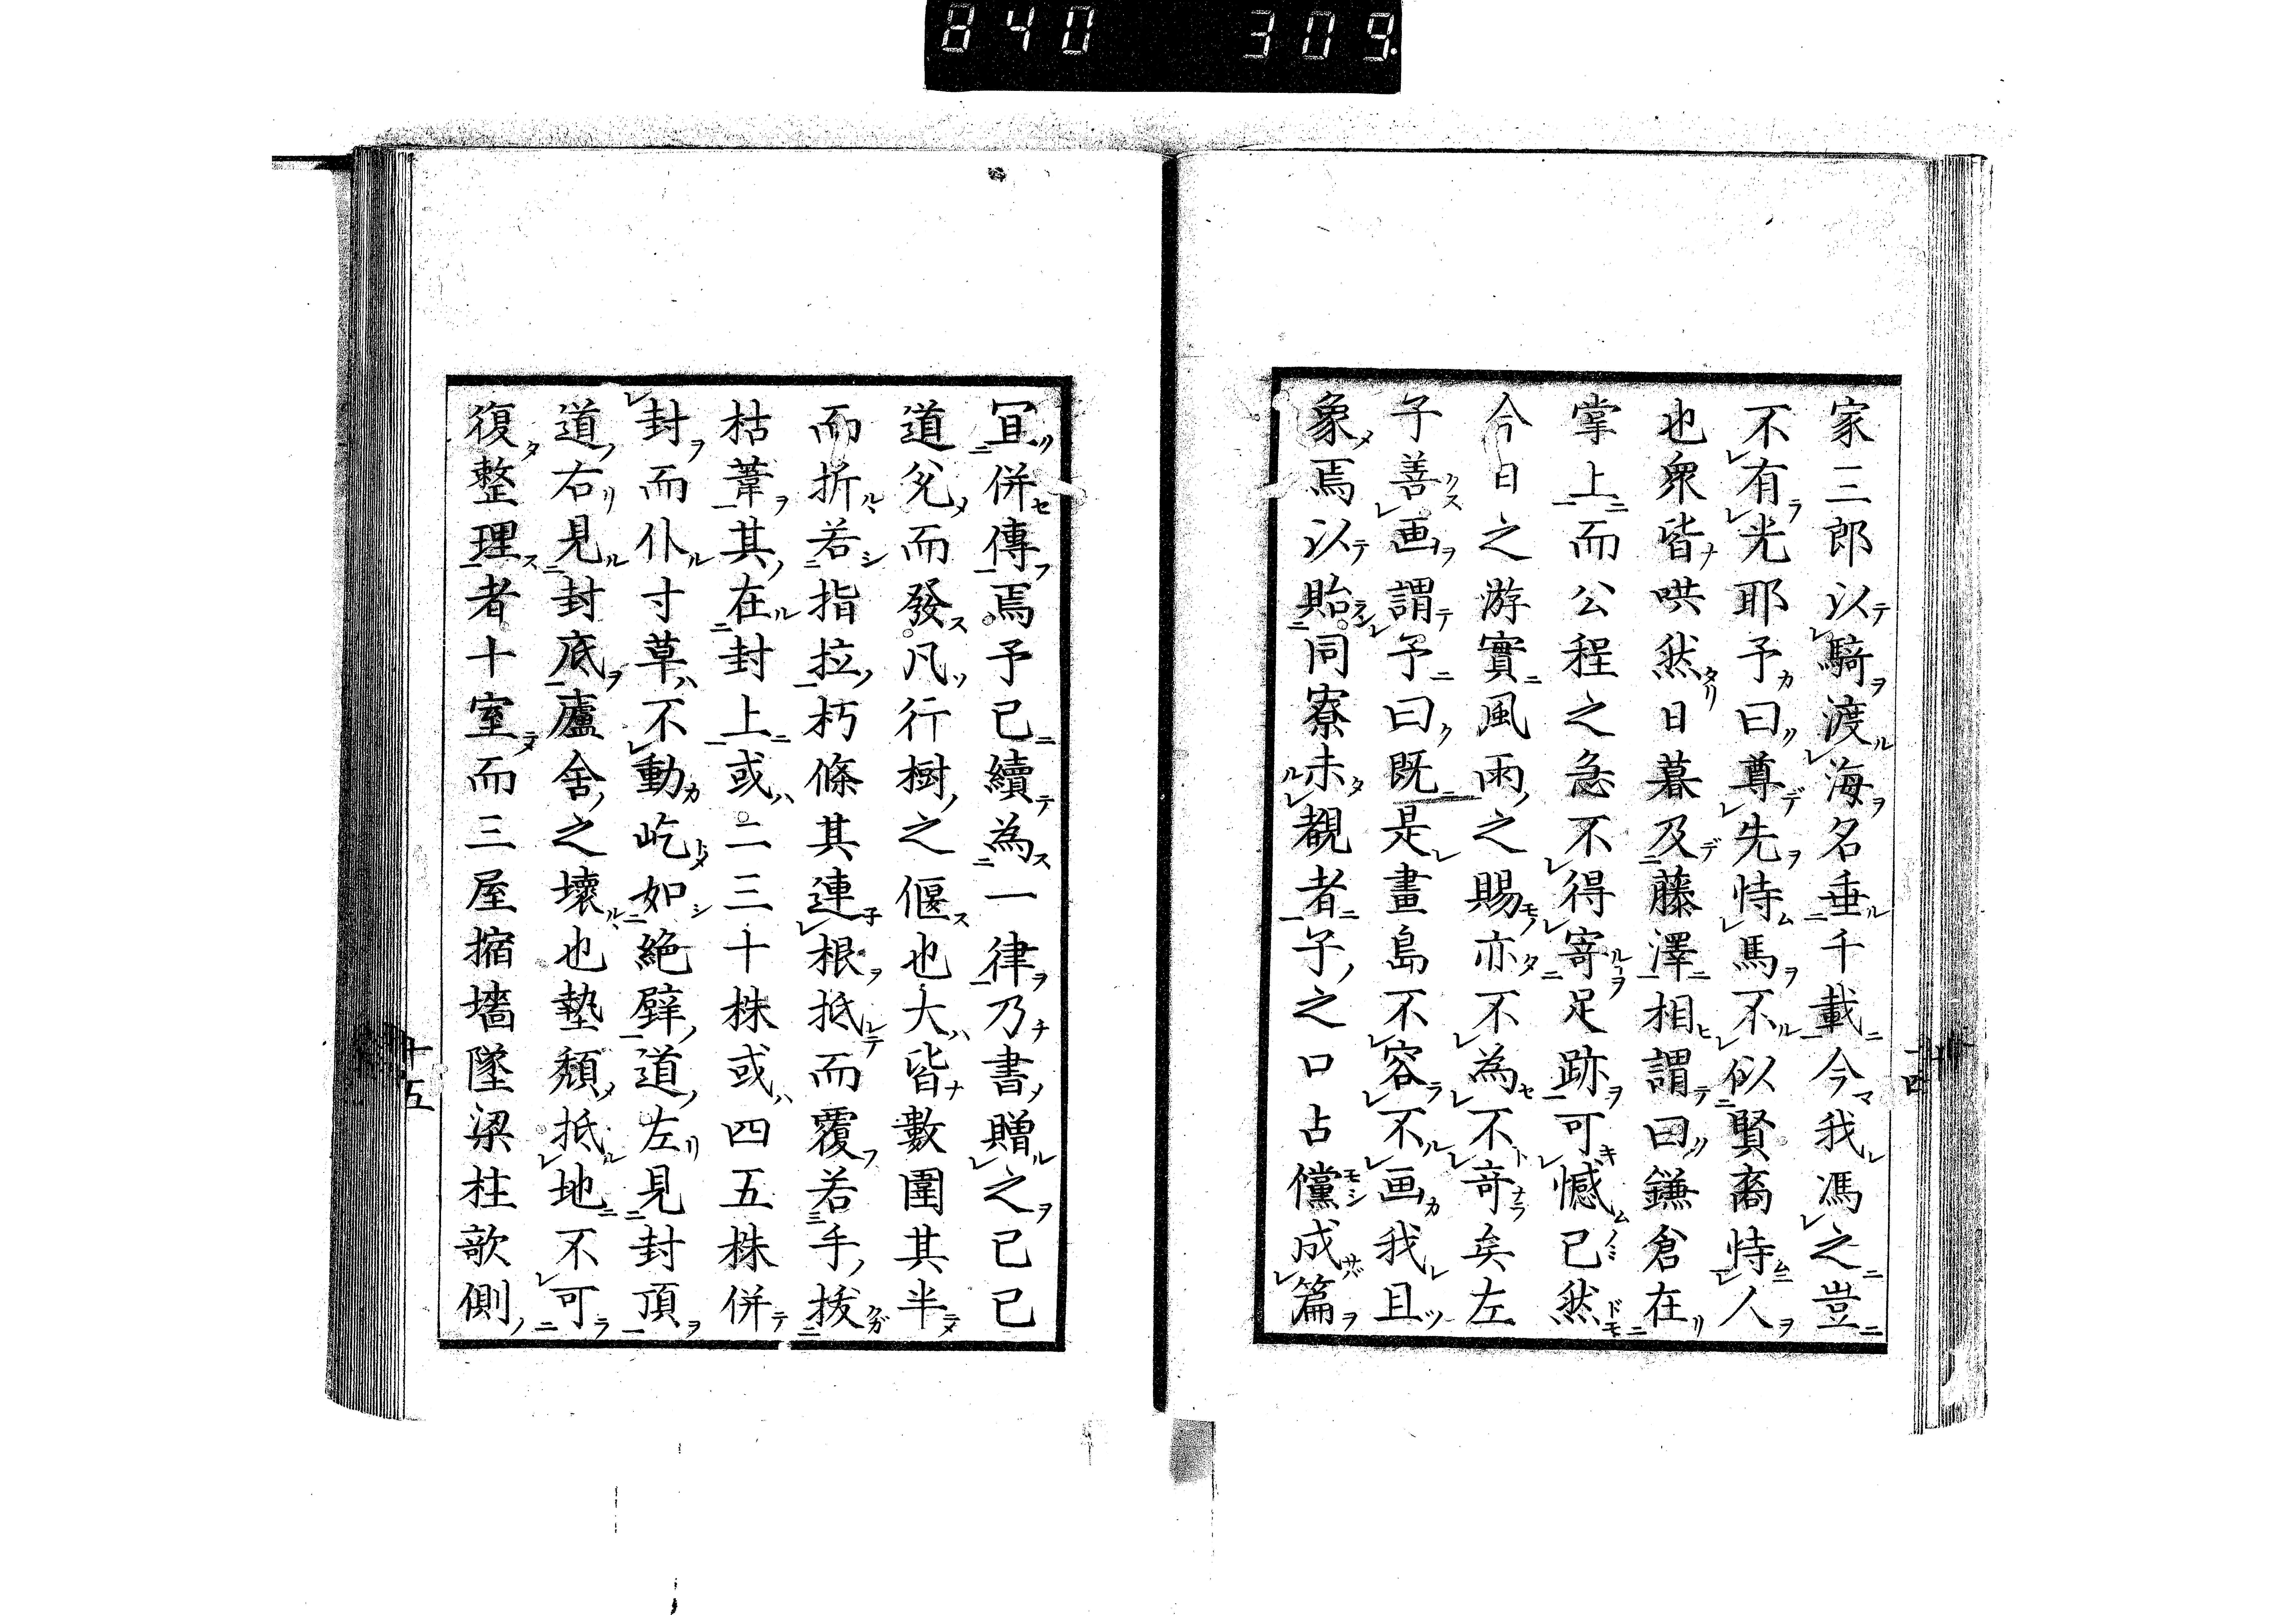 840 309
家三郎以騎渡海名垂千載今我馮之豈
不有光耶予曰尊先恃馬不似賢裔恃人
也衆皆哄然日暮及藤澤相謂曰鎌倉在
掌上而公程之急不得寄足跡可憾已然
今日之游實風雨之賜亦不為不奇矣左
子善画謂予曰既是畫島不容不画我且
象焉以貽同寮未覩者子之口占儻成篇
冝併傳焉予已續為一律乃書贈之已已
道兊而發凡行樹之偃也大皆數圍其半
而折若指拉朽條其連根抵而覆若手拔
枯葦其在封上或二三十株或四五株併
封而仆寸草不動屹如絶壁道左見封頂
道右見封底廬舍之壞也墊頽抵地不可
復整理者十室而三屋摍墻墜梁柱欹側